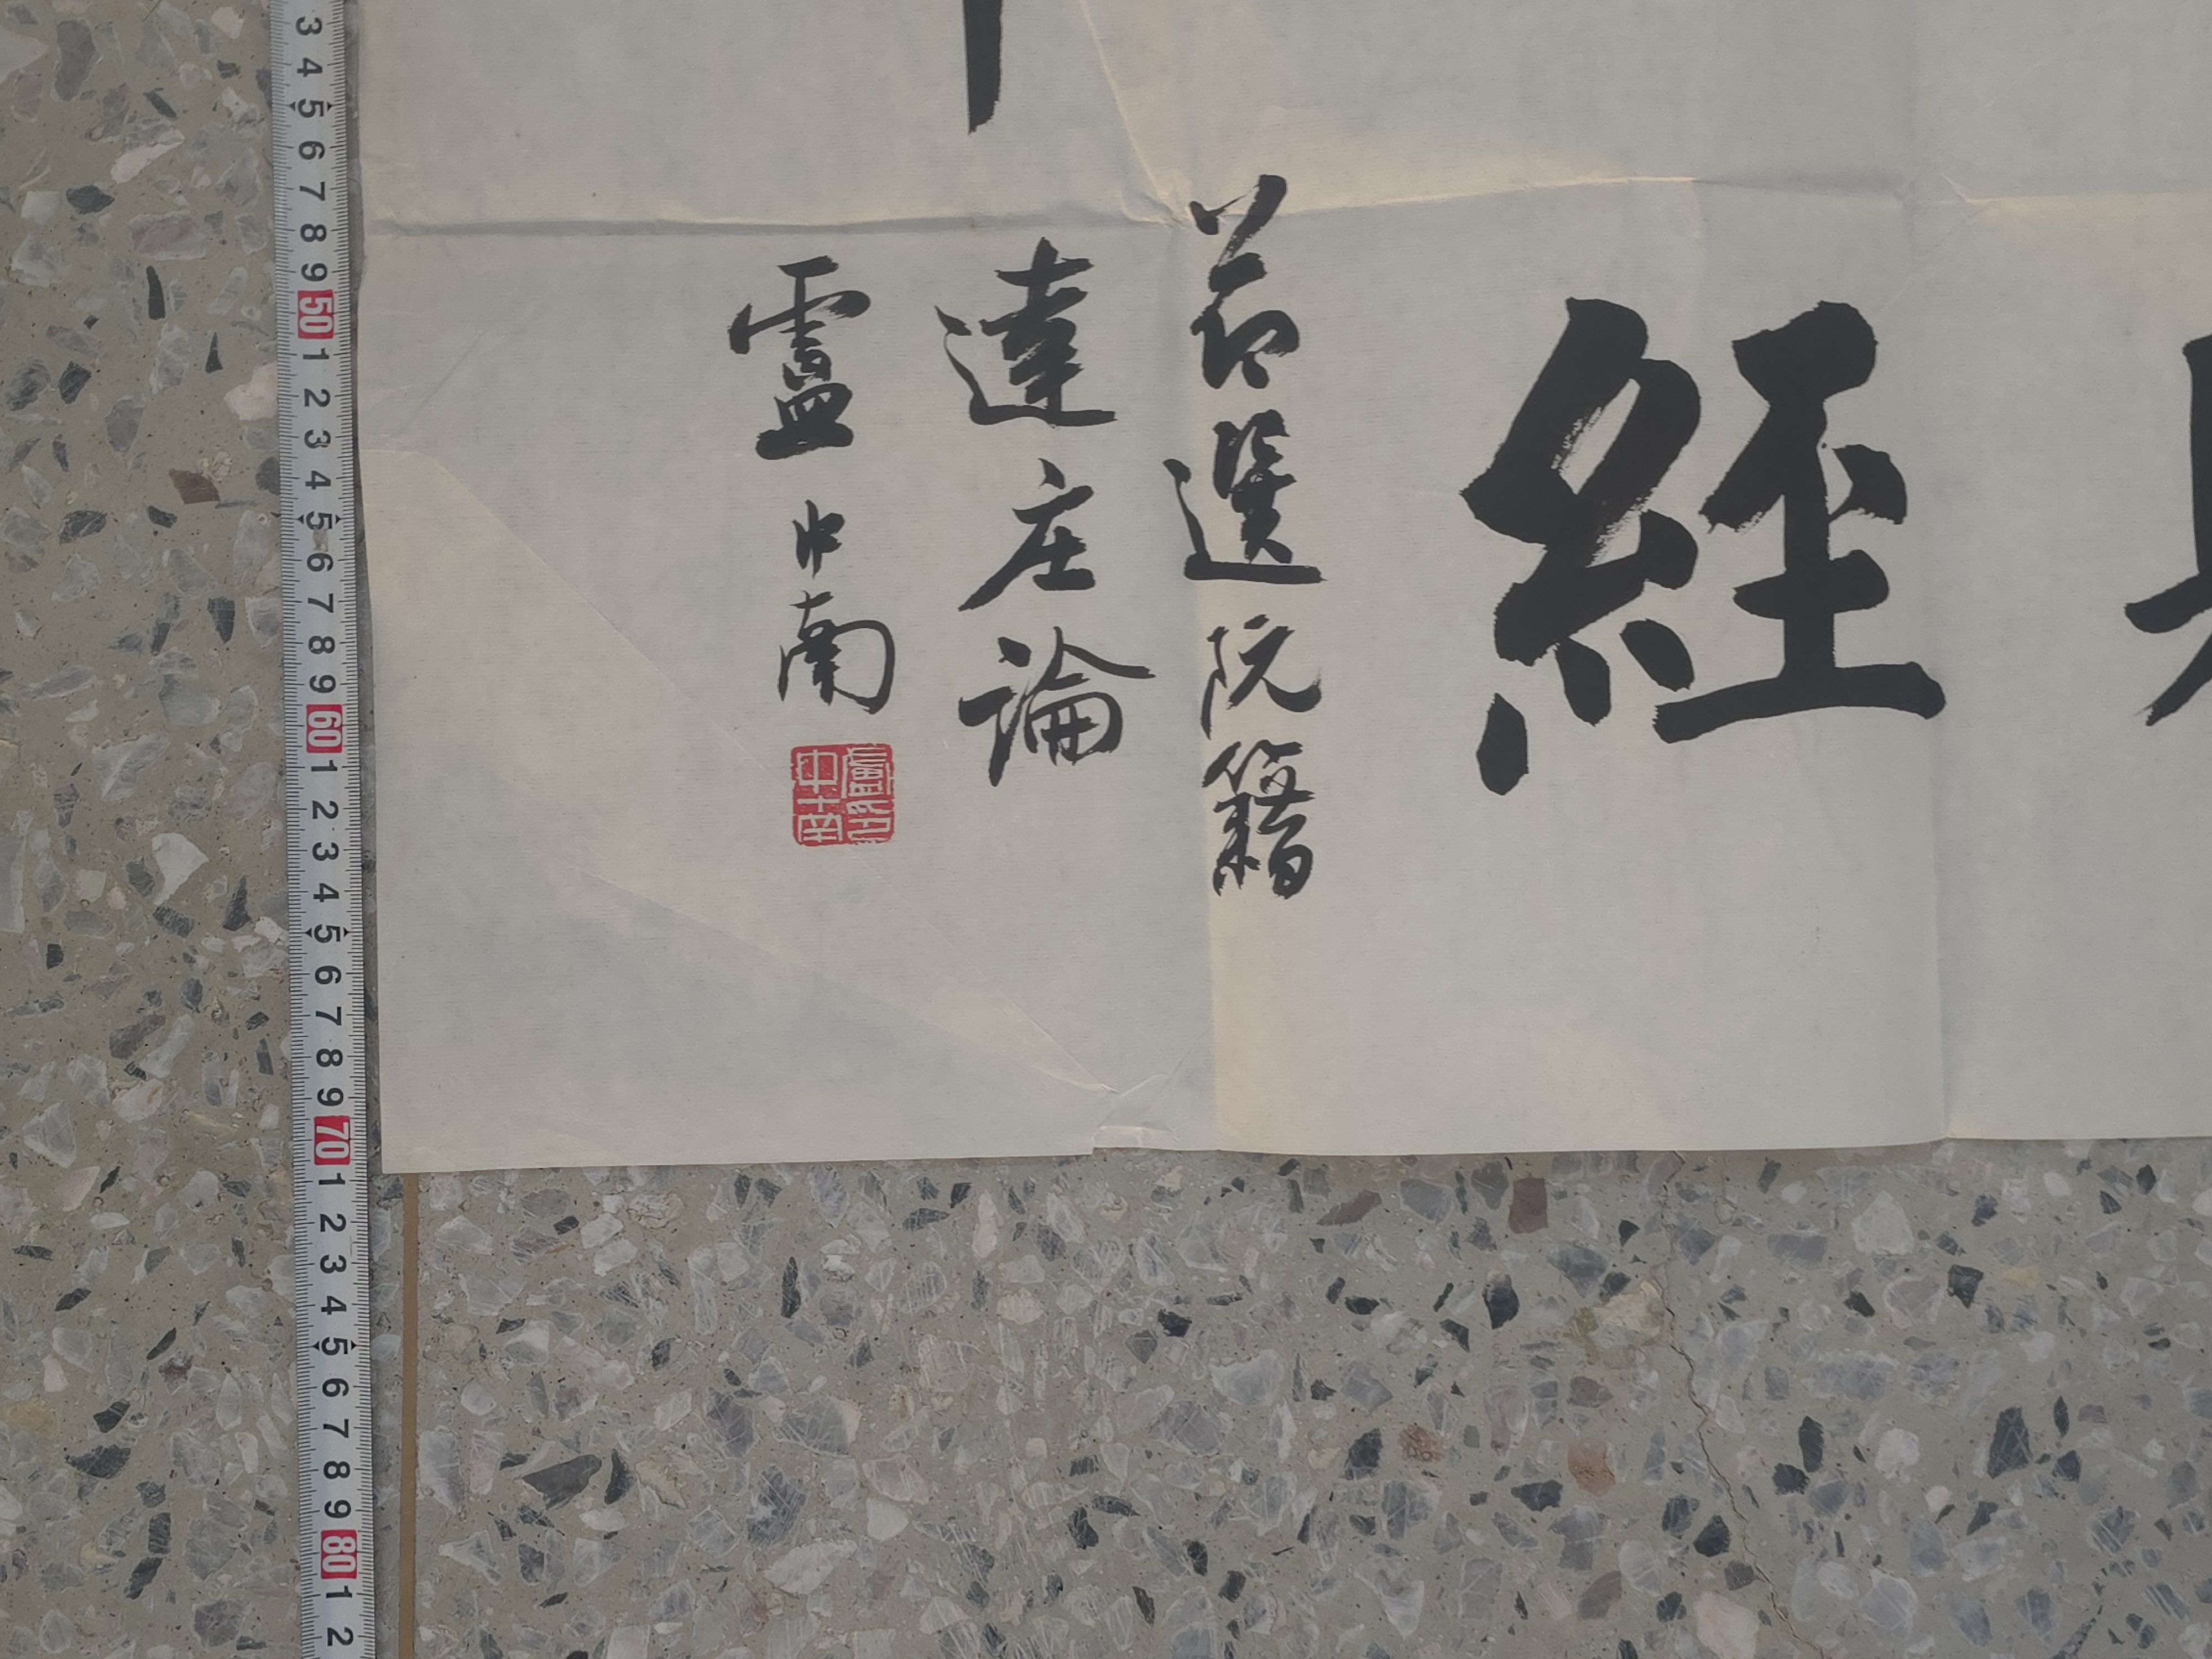 經
節選阮籍
達庄論
盧中南
盧中南印
3
4
5
6
7
8
9
50
1
2
3
4
5
6
7
8
9
60
1
2
3
4
5
6
7
8
9
70
1
2
3
4
5
6
7
8
9
80
1
2